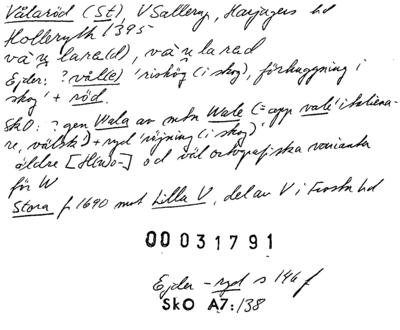 Välaröd (St), V Sallerup, Harjagers hd
1395
va̤ʹ lara(d), va̤ʹ larad
Ejder: ? väl(e) 'rishög (i skog), förhuggning i
skog' + röd.
SkO: ? gen Wala av mbn Wale (= app vale 'italiena-
re, välsk') + ryd 'röjning (i skog)',
äldre [H(w)o-] od väl ortografiska varianter
för W
Stora f 1690 mot Lilla V, del av V i Frosta hd
00031791
Ejder -ryd s 146 f
SkO A7:138